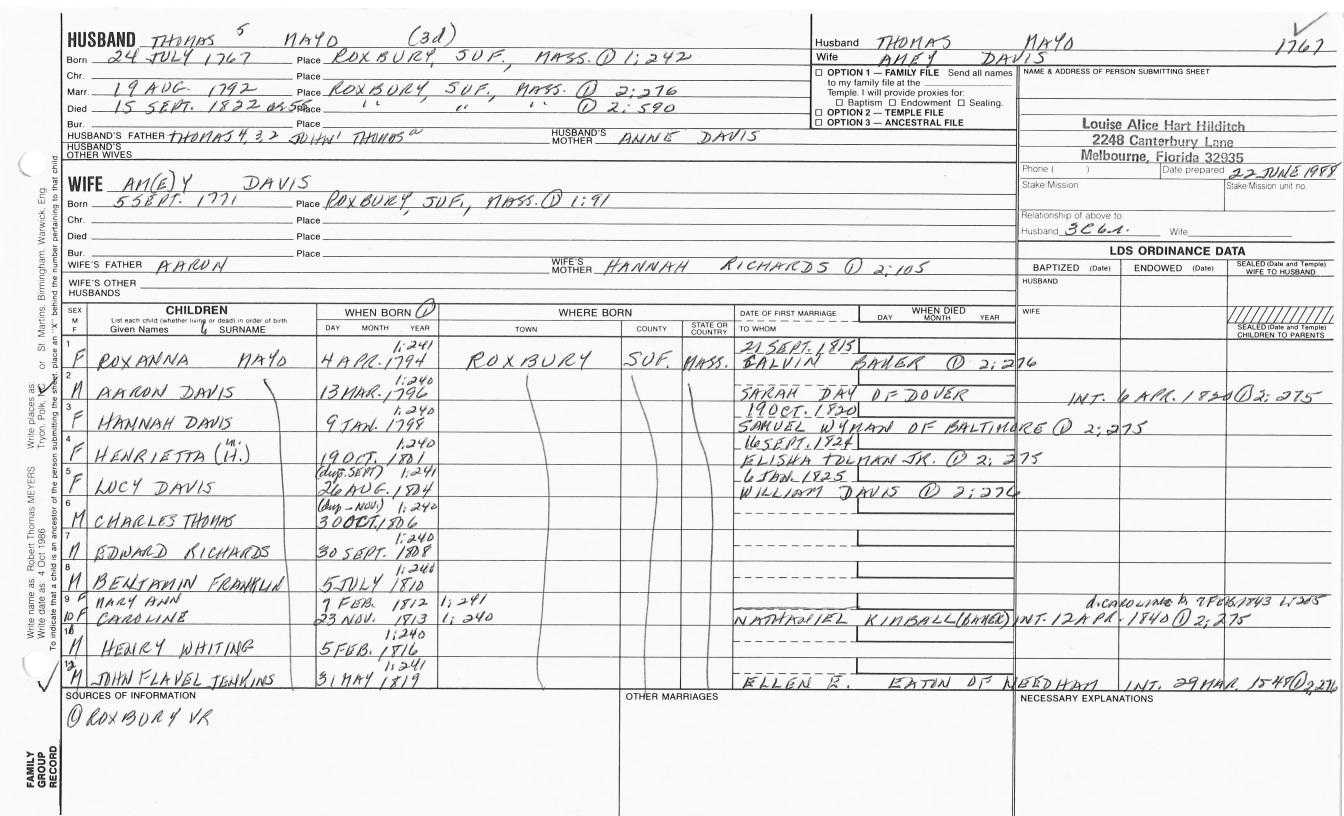 HUSBAND THOMAS 5 MAYO (3d)
Born 24 JULY 1767 Place ROXBURY, SUF., MASS. ① 1;242
Chr. Place
Marr. 19 AUG. 1792 Place ROXBURY, SUF., MASS. ① 2;276
Died 15 SEPT. 1822 ae 55 Place " " " ① 2;590
Bur. Place
HUSBAND'S FATHER THOMAS 4,3,2 JOHN1 THOMASa HUSBAND'S MOTHER ANNE DAVIS
HUSBAND'S OTHER WIVES
WIFE AM(E)Y DAVIS
Born 5 SEPT. 1771 Place ROXBURY, SUF., MASS. ① 1:91
Chr. Place
Died Place
Bur. Place
WIFE'S FATHER AARON WIFE'S MOTHER HANNAH RICHARDS ① 2;105
WIFE'S OTHER HUSBANDS
Husband THOMAS MAYO 1767
Wife AMEY DAVIS
☐ OPTION 1 — FAMILY FILE Send all names
to my family file at the
Temple. I will provide proxies for:
☐ Baptism ☐ Endowment ☐ Sealing.
☐ OPTION 2 — TEMPLE FILE
☐ OPTION 3 — ANCESTRAL FILE
NAME & ADDRESS OF PERSON SUBMITTING SHEET
Louise Alice Hart Hilditch
2248 Canterbury Lane
Melbourne, Florida 32935
Phone ( ) Date prepared 22 JUNE 1988
Stake Mission Stake/Mission unit no.
Relationship of above to
Husband 3C6r. Wife
LDS ORDINANCE DATA
BAPTIZED (Date) ENDOWED (Date) SEALED (Date and Temple) WIFE TO HUSBAND
HUSBAND
WIFE
SEALED (Date and Temple) CHILDREN TO PARENTS
SEX M F CHILDREN WHEN BORN ① WHERE BORN DATE OF FIRST MARRIAGE WHEN DIED
List each child (whether living or dead) in order of birth
Given Names SURNAME DAY MONTH YEAR TOWN COUNTY STATE OR COUNTRY TO WHOM DAY MONTH YEAR
1 1;241 21 SEPT. 1815
F ROXANNA MAYO 4 APR. 1794 ROXBURY SUF. MASS. CALVIN BAKER ① 2;276
2 1;240
M AARON DAVIS 13 MAR. 1796 SARAH DAY OF DOVER INT. 6 APR. 1820 ① 2;275
3 1;240 19 OCT. 1820
F HANNAH DAVIS 9 JAN. 1798 SAMUEL WYMAN OF BALTIMORE ① 2;275
4 m. 1;240 16 SEPT. 1824
F HENRIETTA (H.) 19 OCT. 1801 ELISHA TOLMAN JR. ① 2;275
5 (dup. SEPT) 1;241 6 JAN. 1825
F LUCY DAVIS 26 AUG. 1804 WILLIAM DAVIS ① 2;276
6 (dup - NOV.) 1;240
M CHARLES THOMAS 30 OCT. 1806
7 1;240
M EDWARD RICHARDS 30 SEPT. 1808
8 1;240
M BENJAMIN FRANKLIN 5 JULY 1810
9 F MARY ANN 7 FEB. 1812 1;241 d. CAROLINE 7 FEB 1843
10 F CAROLINE 23 NOV. 1813 1;240 NATHANIEL KIMBALL (BAKER) INT. 12 APR. 1840 ① 2;275
11 1;240
M HENRY WHITING 5 FEB. 1816
12 1;241
M JOHN FLAVEL JENKINS 31 MAY 1819 ELLEN E. EATON OF NEEDHAM INT. 29 MAR. 1848 ① 2;276
SOURCES OF INFORMATION OTHER MARRIAGES NECESSARY EXPLANATIONS
① ROXBURY VR
Write name as: Robert Thomas MEYERS Write places as:
Write date as: 4 Oct 1986 Tryon, Polk, NC or St. Martins, Birmingham, Warwick, Eng.
To indicate that a child is an ancestor of the person submitting the sheet place an "X" behind the number pertaining to that child
FAMILY GROUP RECORD